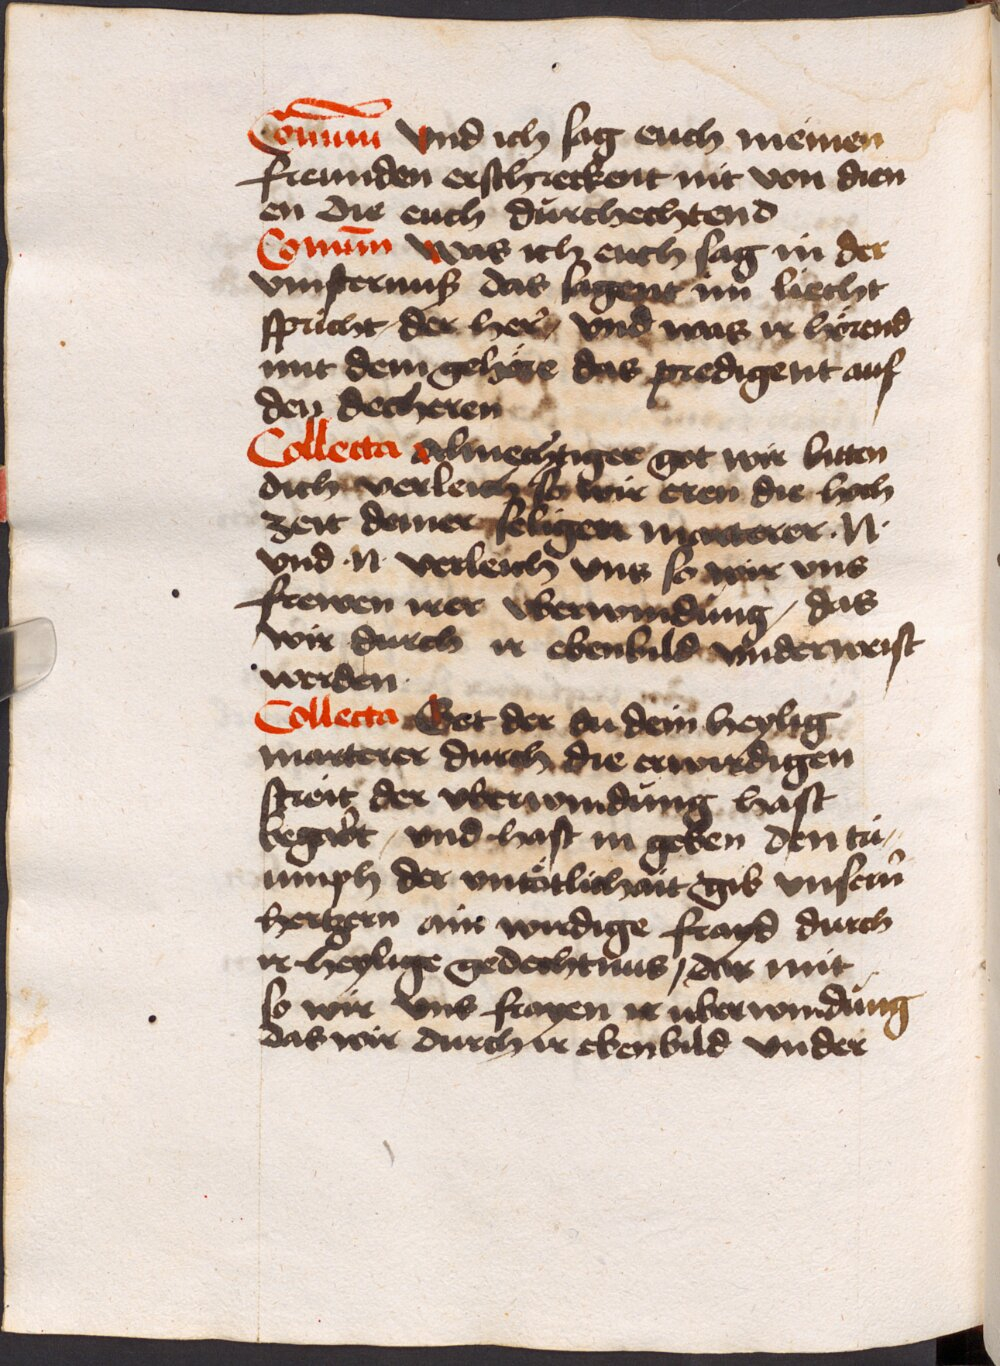 Comūm Vnd ich sag euch meinen
freunden erschreckent nit von dien
en die euch durchechtend
Comūm Was ich euch sag in der
vinsternuß das sagent im liecht
spricht der her, vnd was ir hörend
mit dem gehöre das predigent auf
den decheren
Collecta Almechtiger got wir bitten
dich verleich so wir eren die hoch
zeit deiner seligen marterer ·N·
vnd ·N· verleich vns so wir vns
frewen irer vberwindung, das
wir durch ir ebenbild vnderweist
werden.
Collecta Got der du dein heylig
marterer durch die erwirdigen
streit der vberwindung hast
begabt, vnd hast in geben den tri
umph der vntötlichait, gib vnsern
hertzern ain wirdige frayd durch
ir heylige gedechtnus, dar mit
so wir vns frayen ir uberwindung
das wir durch ir ebenbild vnder